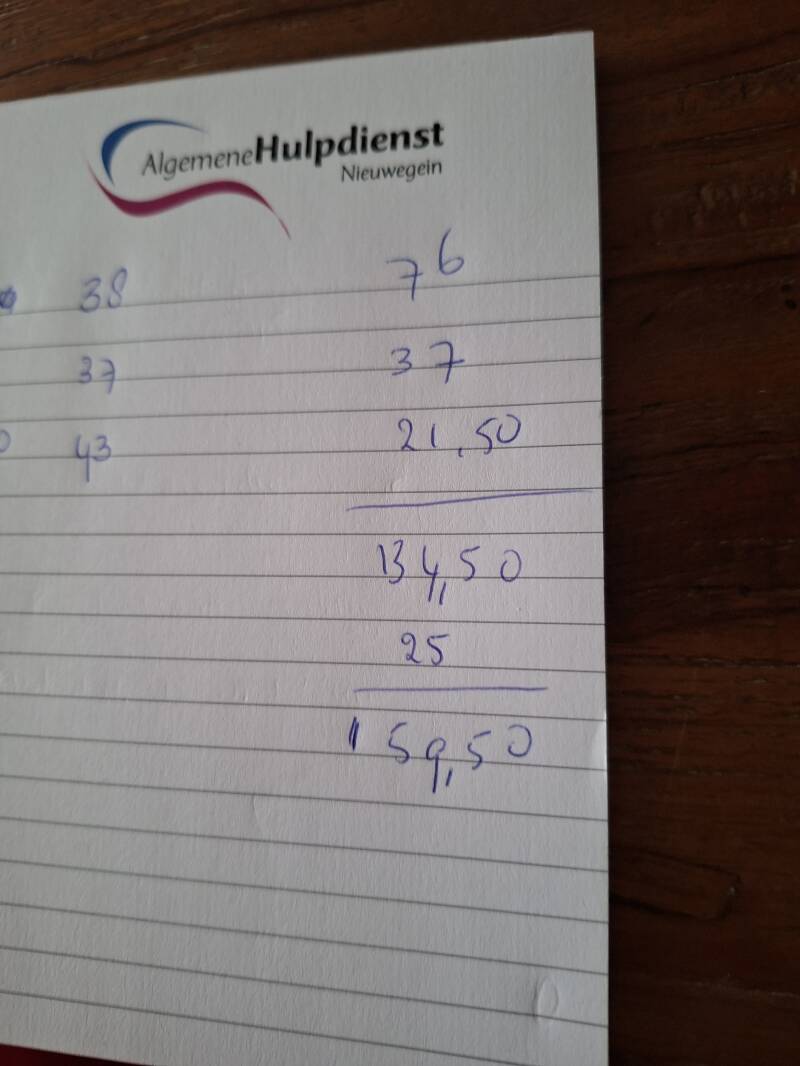 AlgemeneHulpdienst
Nieuwegein
38 76
37 37
43 21,50
134,50
25
159,50